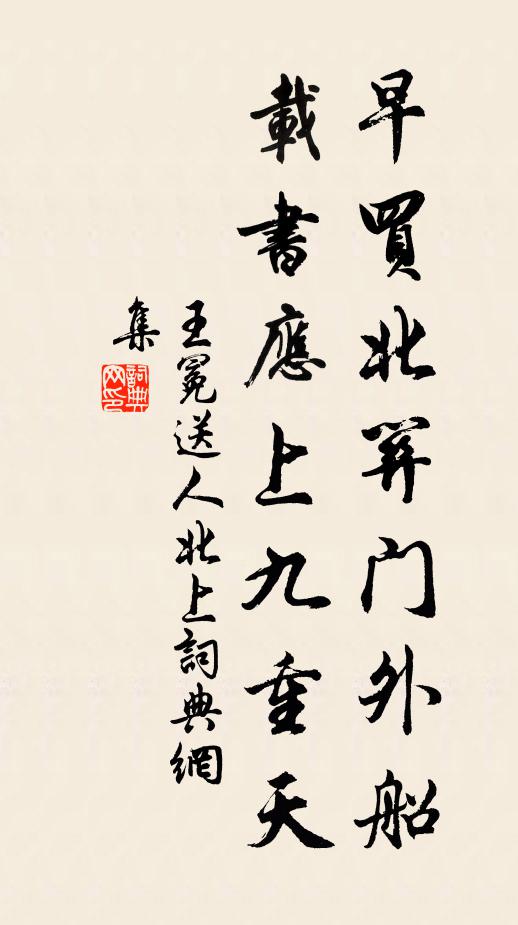 早買北關門外船
載書應上九重天
王冕送人北上詞典網
集
詞典
网印